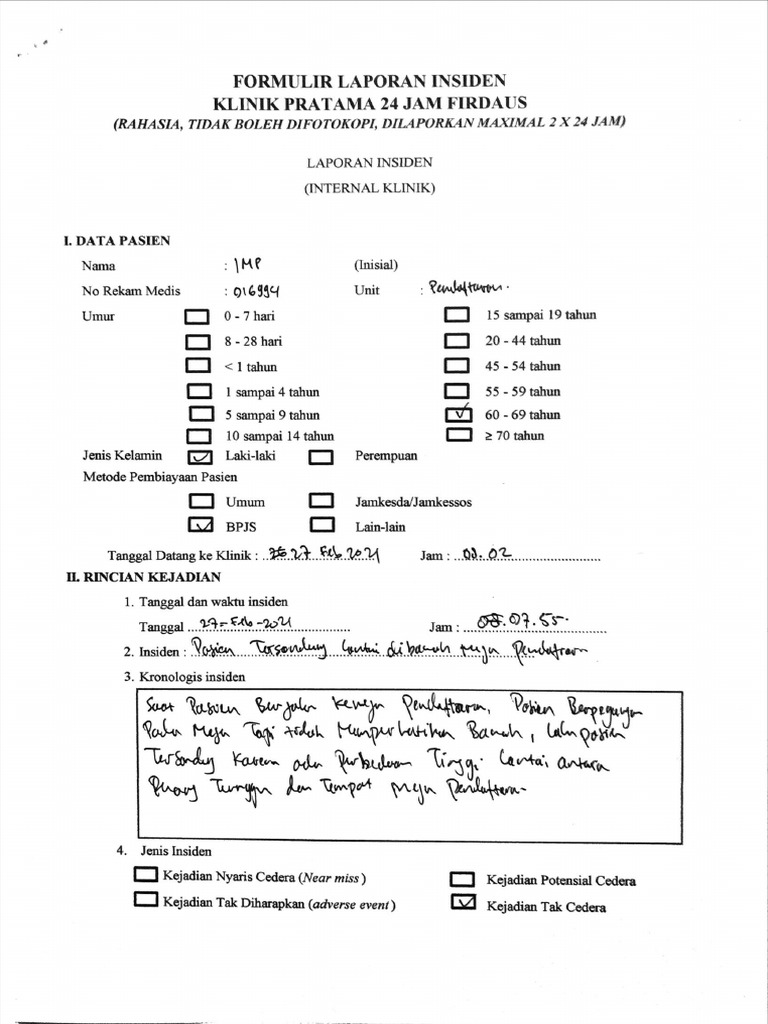 FORMULIR LAPORAN INSIDEN
KLINIK PRATAMA 24 JAM FIRDAUS
(RAHASIA, TIDAK BOLEH DIFOTOKOPI, DILAPORKAN MAXIMAL 2 X 24 JAM)
LAPORAN INSIDEN
(INTERNAL KLINIK)
I. DATA PASIEN
Nama : IMP (Inisial)
No Rekam Medis : 016994 Unit : Pendaftaran.
Umur 0 - 7 hari 15 sampai 19 tahun
8 - 28 hari 20 - 44 tahun
< 1 tahun 45 - 54 tahun
1 sampai 4 tahun 55 - 59 tahun
5 sampai 9 tahun ✓ 60 - 69 tahun
10 sampai 14 tahun ≥ 70 tahun
Jenis Kelamin ✓ Laki-laki Perempuan
Metode Pembiayaan Pasien
Umum Jamkesda/Jamkessos
✓ BPJS Lain-lain
Tanggal Datang ke Klinik : 27 Feb 2021 Jam : 08.02
II. RINCIAN KEJADIAN
1. Tanggal dan waktu insiden
Tanggal 27-Feb-2021 Jam : 07.55.
2. Insiden : Pasien Tersandung Lantai dibawah Meja Pendaftaran
3. Kronologis insiden
Saat Pasien Berjalan Kemeja Pendaftaran, Pasien Berpegangan
Pada Meja Tapi tidak Memperhatikan Bawah, lalu pasien
Tersandung Karena ada Perbedaan Tinggi Lantai antara
Ruang Tunggu dan Tempat Meja Pendaftaran
4. Jenis Insiden
Kejadian Nyaris Cedera (Near miss ) Kejadian Potensial Cedera
Kejadian Tak Diharapkan (adverse event ) ✓ Kejadian Tak Cedera